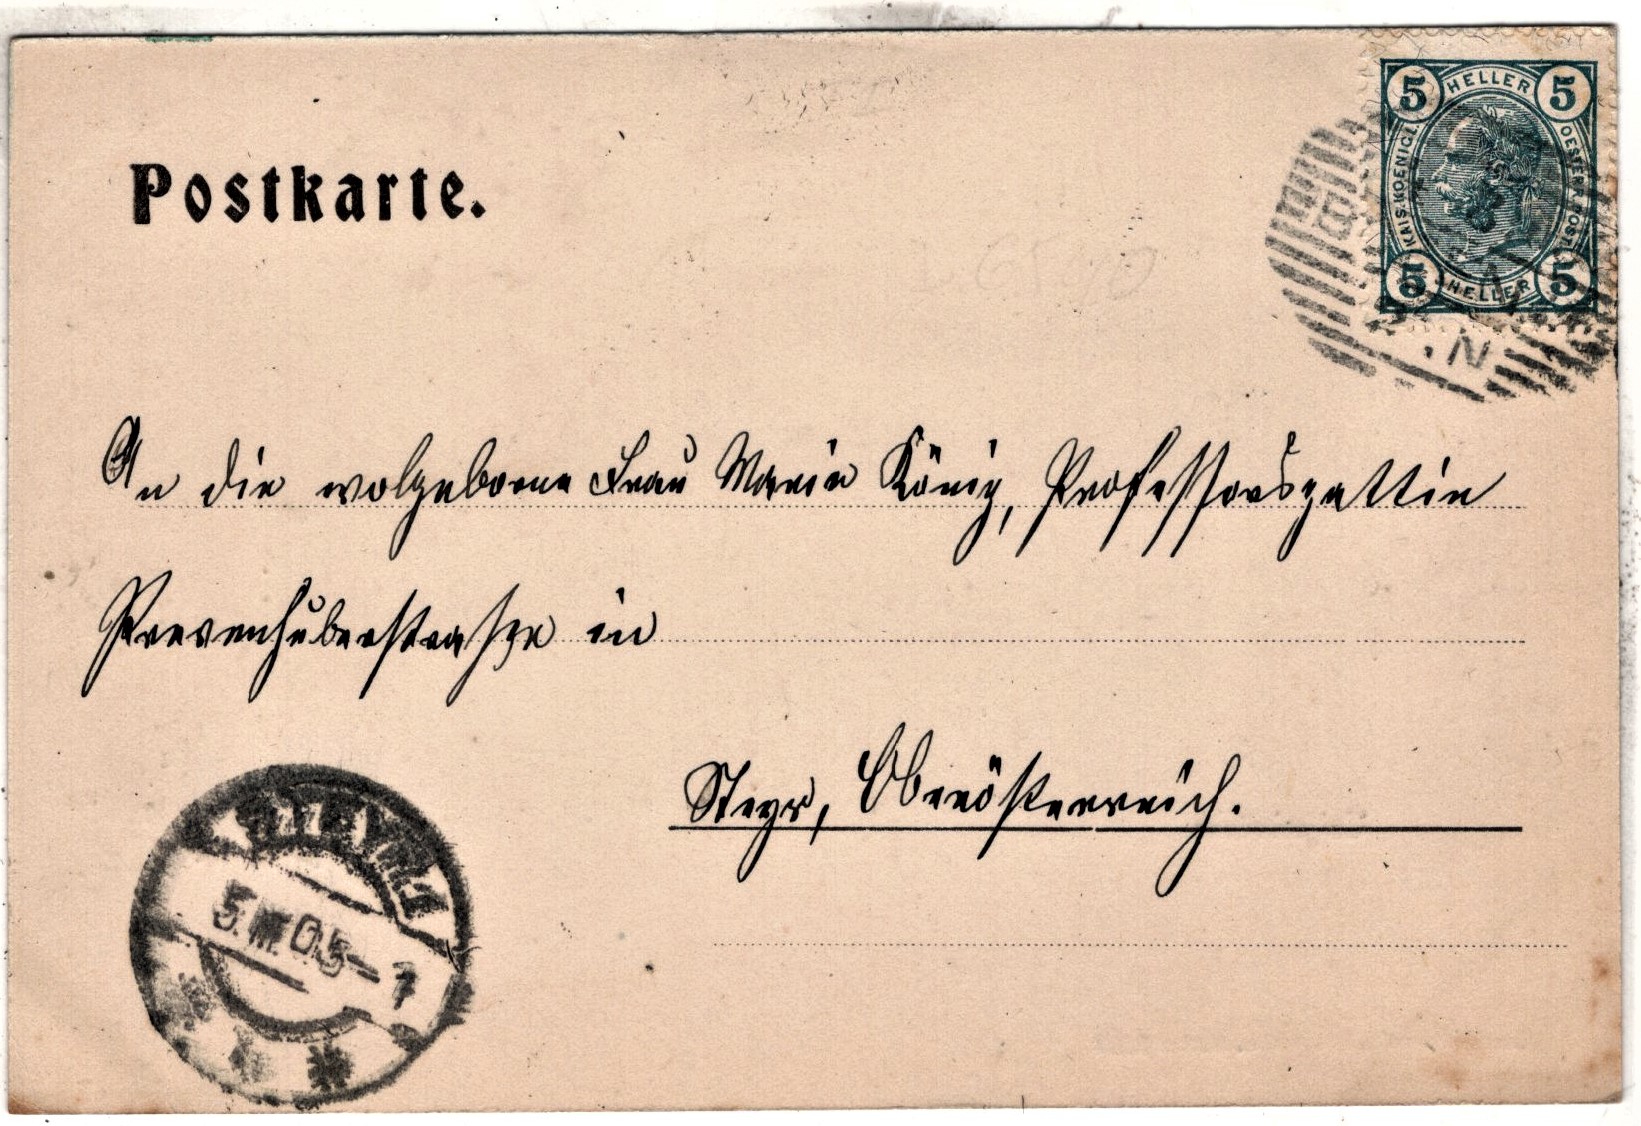 Postkarte.
5 HELLER 5
KAIS. KOENIGL. OESTERR. POST.
5 HELLER 5
An die wolgeborne Frau Marie König, Professorsgattin
Preuenhuberstraße in
Steyr, Oberösterreich.
5.III.05-7